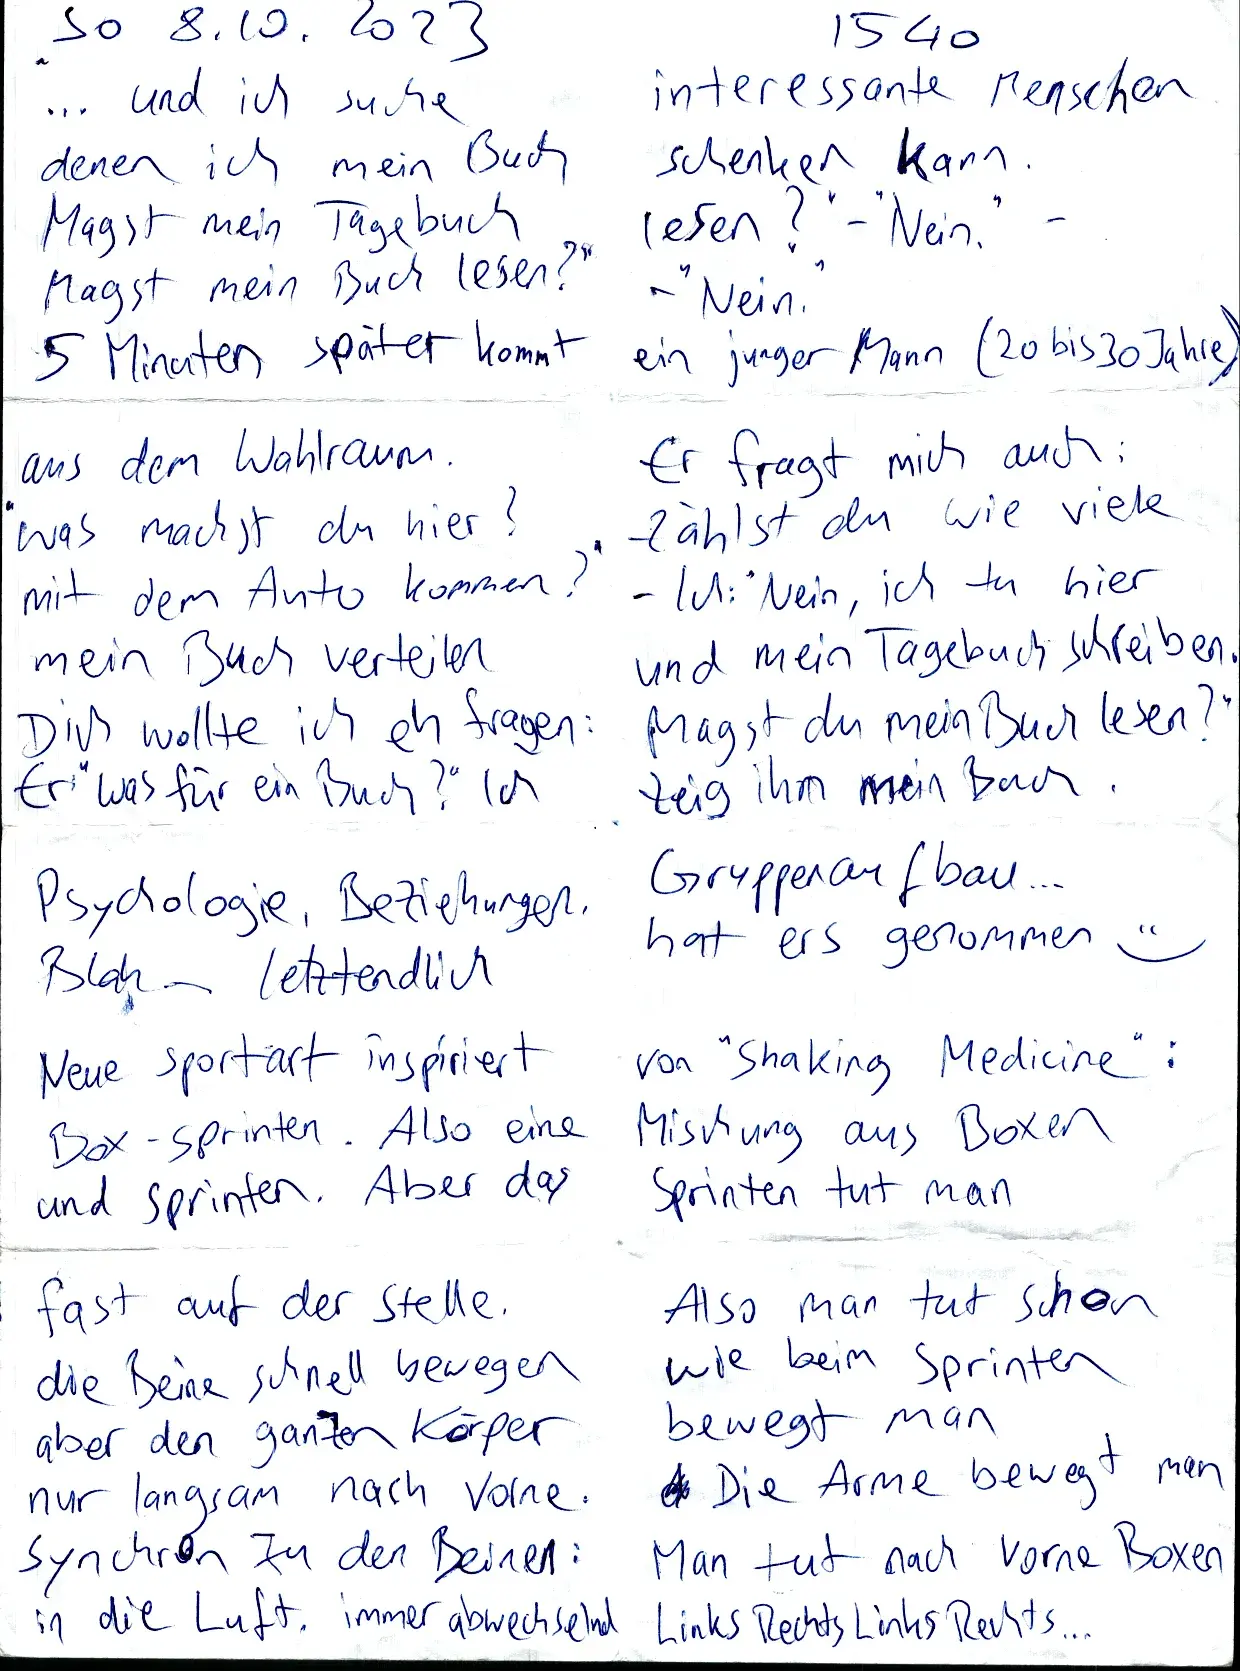 So 8.10. 2023 1540
"... und ich suche interessante Menschen
denen ich mein Buch schenken kann.
Magst mein Tagebuch lesen?" - "Nein." -
Magst mein Buch lesen?"" - "Nein."
5 Minuten später kommt ein junger Mann (20 bis 30 Jahre)
aus dem Wahlraum. Er fragt mich auch:
"was machst du hier? Zählst du wie viele
mit dem Auto kommen?" - Ich: "Nein, ich tu hier
mein Buch verteilen und mein Tagebuch schreiben.
Dich wollte ich eh fragen: Magst du mein Buch lesen?"
Er: "Was für ein Buch?" Ich zeig ihm mein Buch.
Psychologie, Beziehungen, Gruppenaufbau...
Blah letztendlich hat ers genommen
Neue sportart inspiriert von "Shaking Medicine":
Box-sprinten. Also eine Mischung aus Boxen
und sprinten. Aber das Sprinten tut man
fast auf der stelle. Also man tut schon
die Beine schnell bewegen wie beim Sprinten
aber den ganzen Körper bewegt man
nur langsam nach vorne. Die Arme bewegt man
synchron zu den Beinen: Man tut nach vorne Boxen
in die Luft. immer abwechselnd Links Rechts Links Rechts...